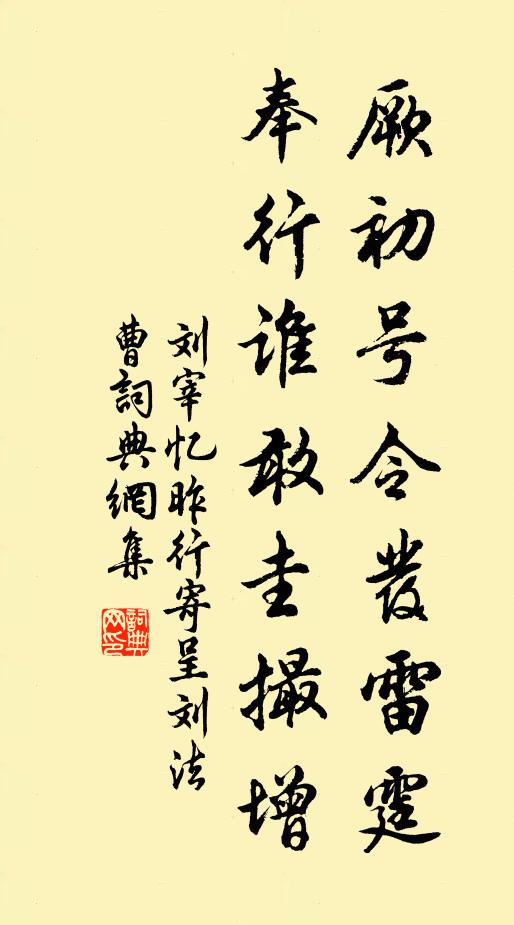 厥初号令發雷霆
奉行谁敢圭撮增
刘宰忆昨行寄呈刘法
曹詞典網集
詞典網印